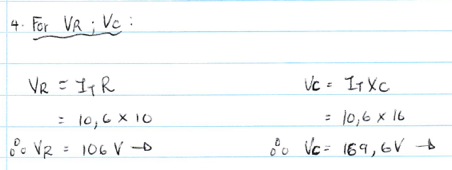 4. For VR ; VC :
VR = IT R
= 10,6 × 10
∴ VR = 106 V →
VC = IT XC
= 10,6 × 16
∴ VC = 169,6V →